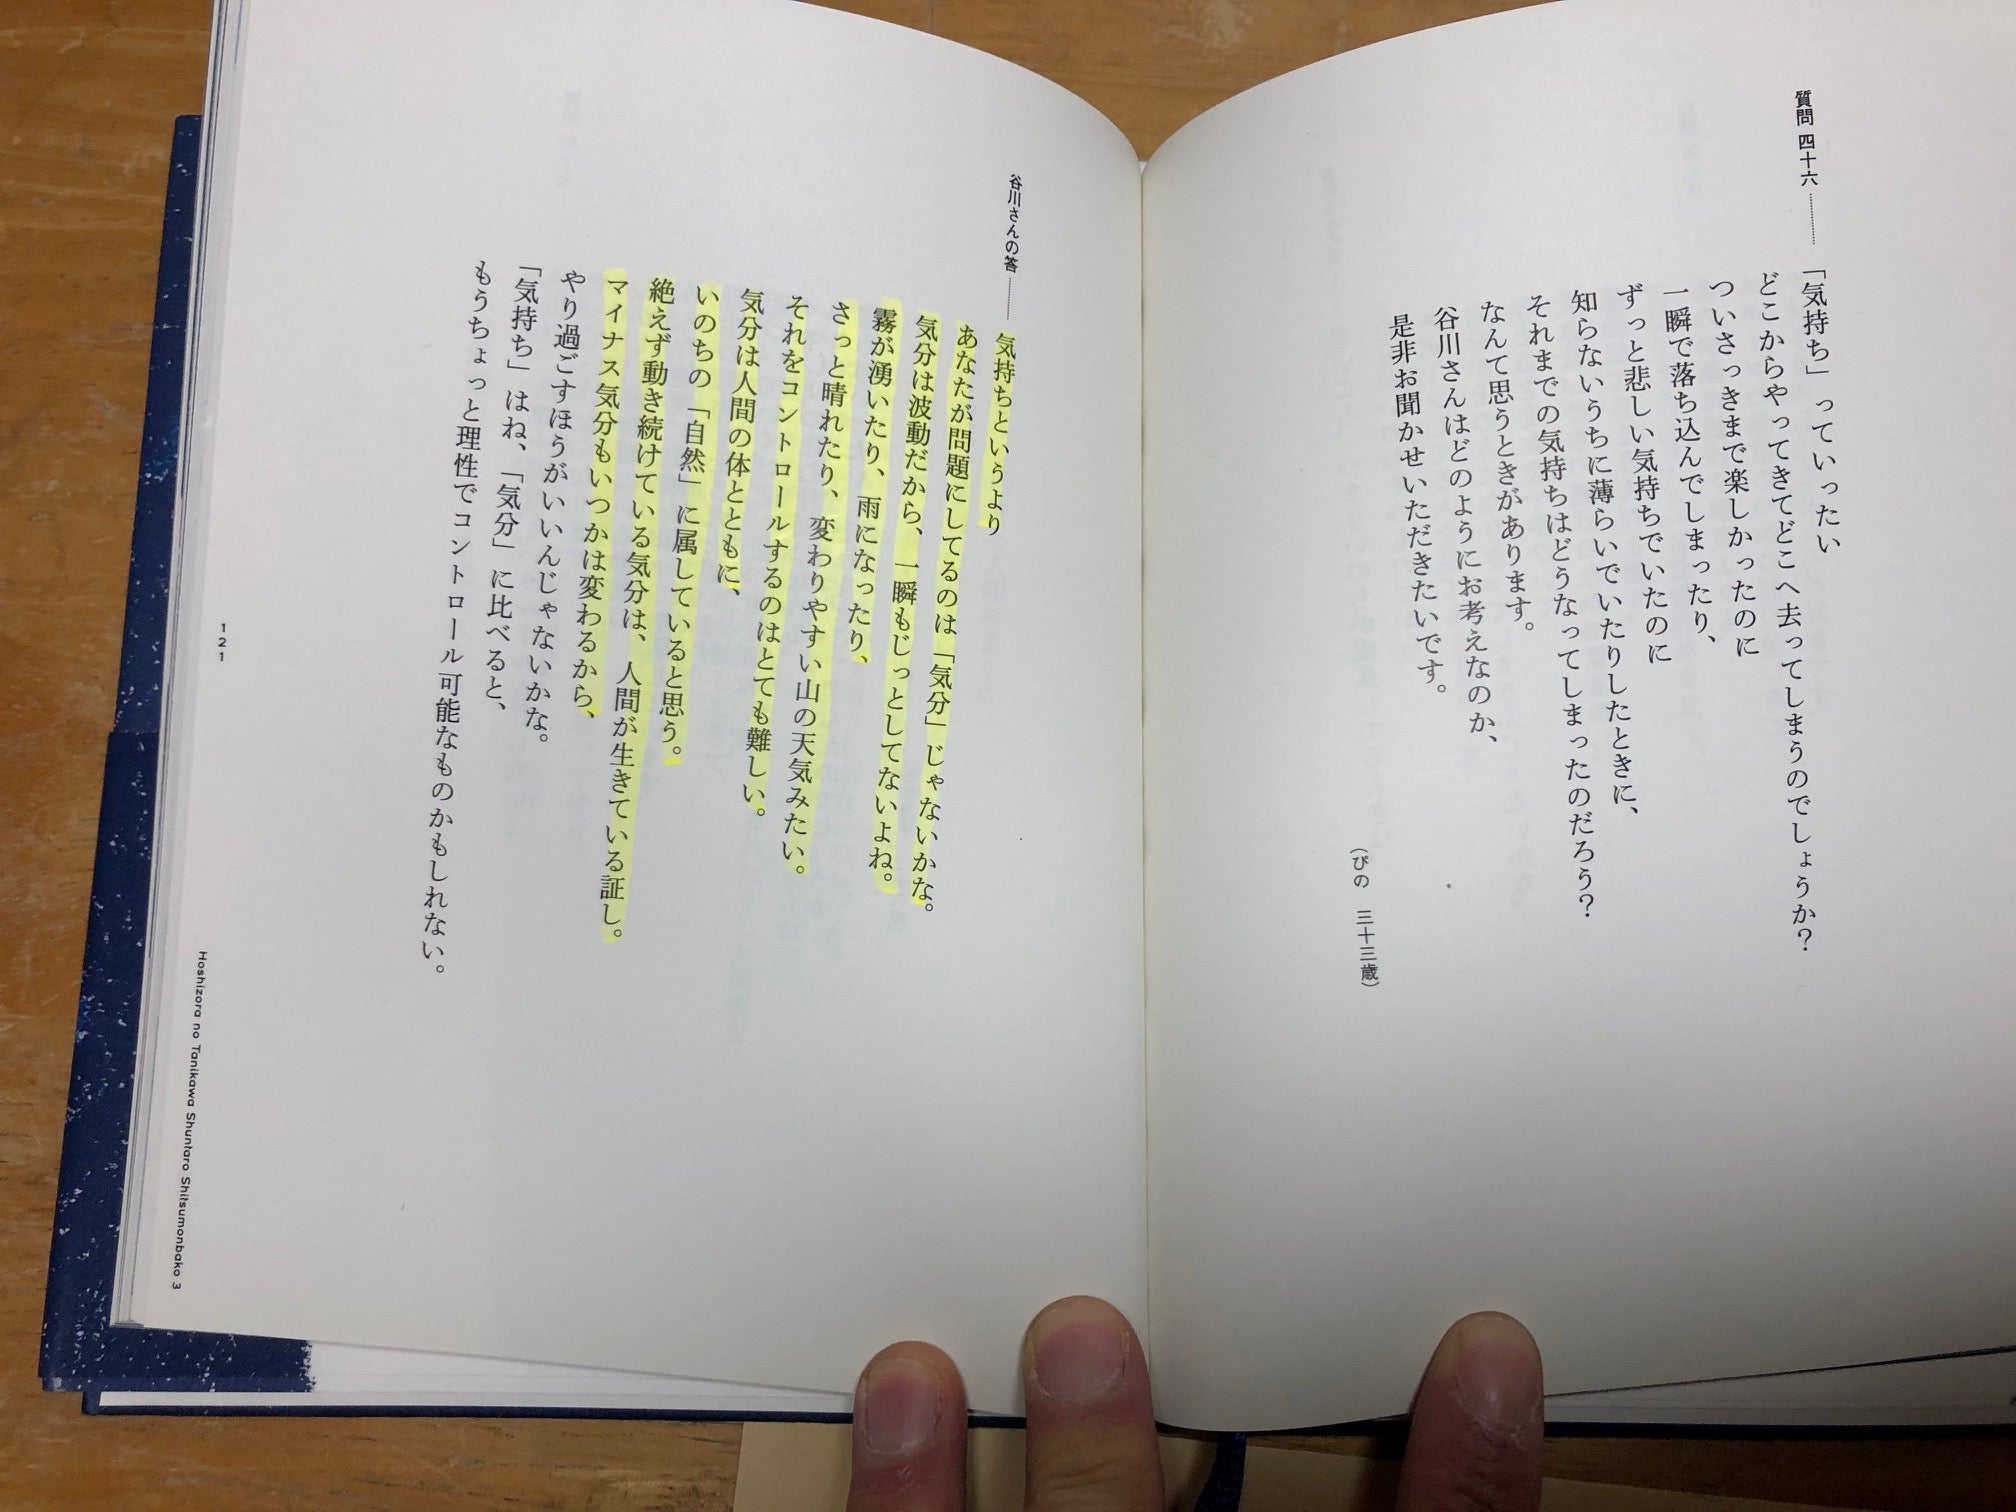 質問 四十六
「気持ち」っていったい
どこからやってきてどこへ去ってしまうのでしょうか?
ついさっきまで楽しかったのに
一瞬で落ち込んでしまったり、
ずっと悲しい気持ちでいたのに
知らないうちに薄らいでいたりしたときに、
それまでの気持ちはどうなってしまったのだろう?
なんて思うときがあります。
谷川さんはどのようにお考えなのか、
是非お聞かせいただきたいです。
(ぴの 三十三歳)
谷川さんの答
気持ちというより
あなたが問題にしてるのは「気分」じゃないかな。
気分は波動だから、一瞬もじっとしてないよね。
霧が湧いたり、雨になったり、
さっと晴れたり、変わりやすい山の天気みたい。
それをコントロールするのはとても難しい。
気分は人間の体とともに、
いのちの「自然」に属していると思う。
絶えず動き続けている気分は、人間が生きている証し。
マイナス気分もいつかは変わるから、
やり過ごすほうがいいんじゃないかな。
「気持ち」はね、「気分」に比べると、
もうちょっと理性でコントロール可能なものかもしれない。
121
Hoshizora no Tanikawa Shuntaro Shitsumonbako 3